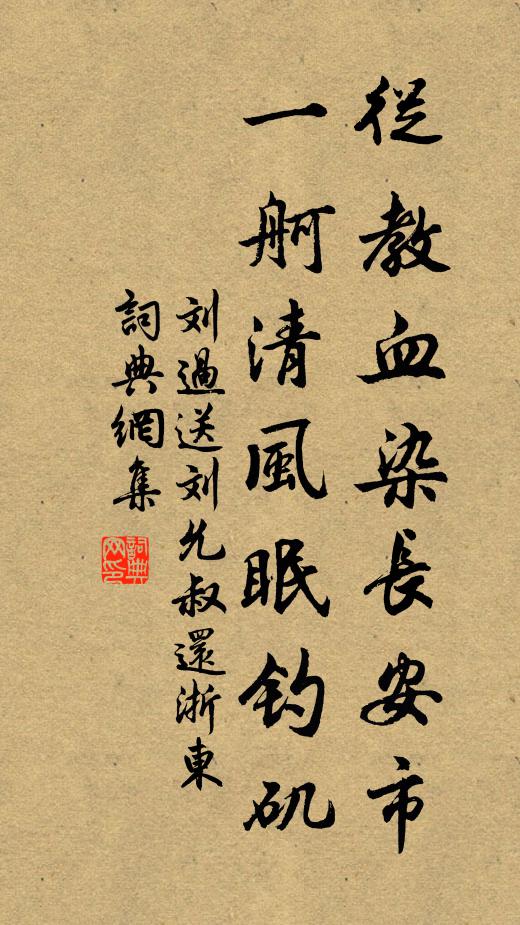 從教血染長安市
一舸清風眠钓矶
刘過送刘允叔還浙東
詞典網集
詞典网印